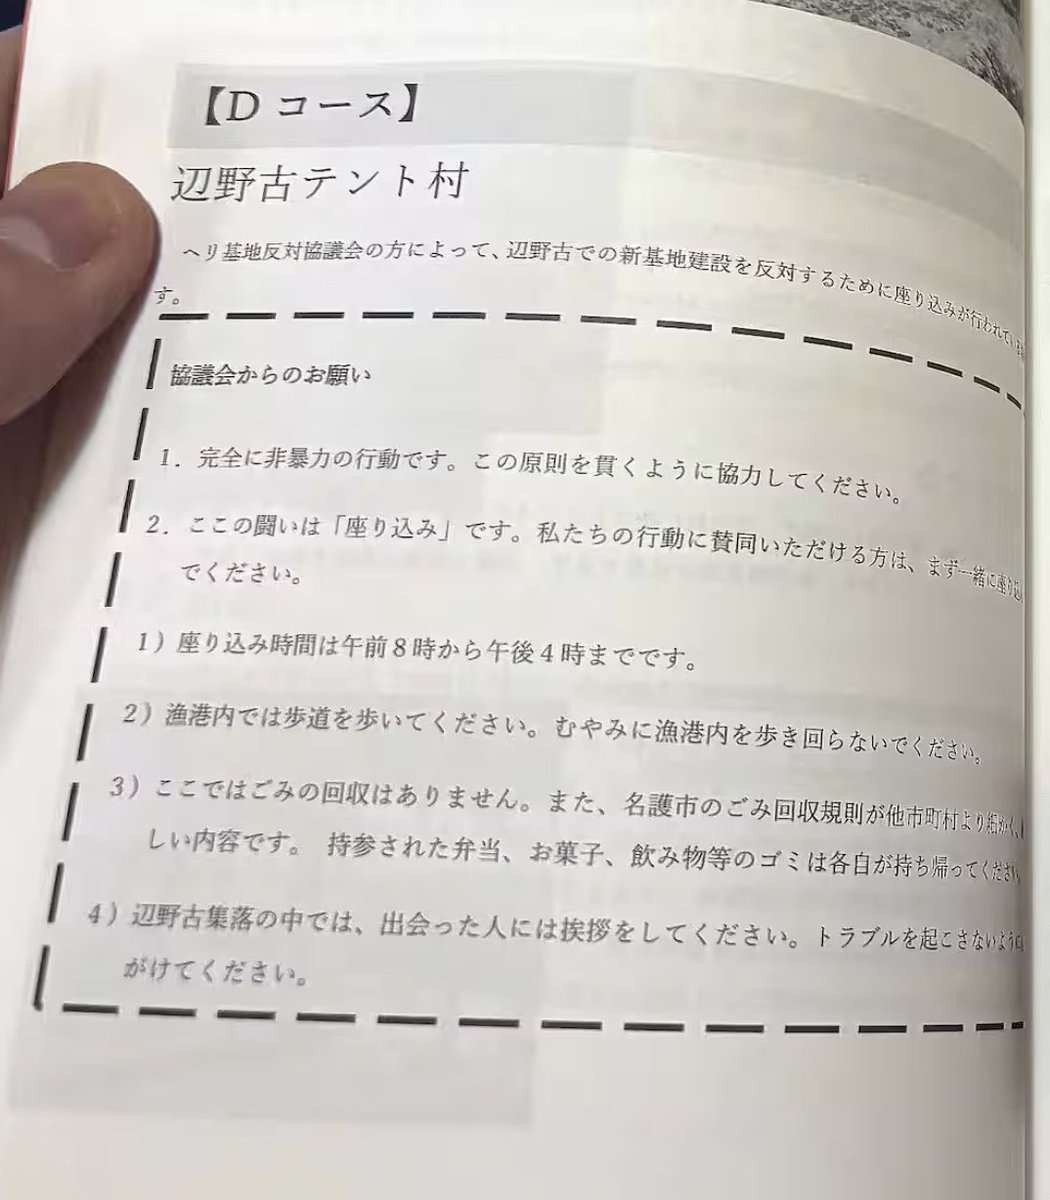 【D コース】
辺野古テント村
ヘリ基地反対協議会の方によって、辺野古での新基地建設を反対するために座り込みが行われてい
す。
協議会からのお願い
1．完全に非暴力の行動です。この原則を貫くように協力してください。
2．ここの闘いは「座り込み」です。私たちの行動に賛同いただける方は、まず一緒に座り込
でください。
1）座り込み時間は午前８時から午後４時までです。
2）漁港内では歩道を歩いてください。むやみに漁港内を歩き回らないでください。
3）ここではごみの回収はありません。また、名護市のごみ回収規則が他市町村より細かく、
しい内容です。 持参された弁当、お菓子、飲み物等のゴミは各自が持ち帰ってください
4）辺野古集落の中では、出会った人には挨拶をしてください。トラブルを起こさないように
がけてください。